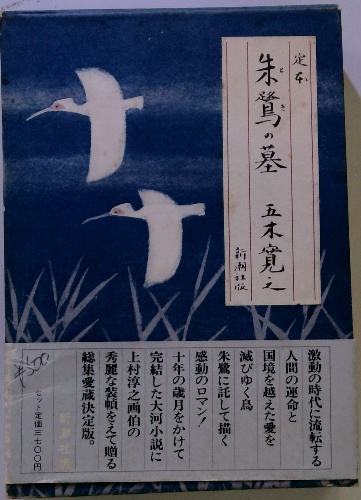 定本
朱鷺の墓
とき
五木寛之
新潮社版
激動の時代に流転する
人間の運命と
国境を越えた愛を
滅びゆく鳥
朱鷺に託して描く
感動のロマン!
十年の歳月をかけて
完結した大河小説に
上村淳之画伯の
秀麗な装幀をえて贈る
総集愛蔵決定版。
新潮社版
セット定価三七〇〇円
¥500